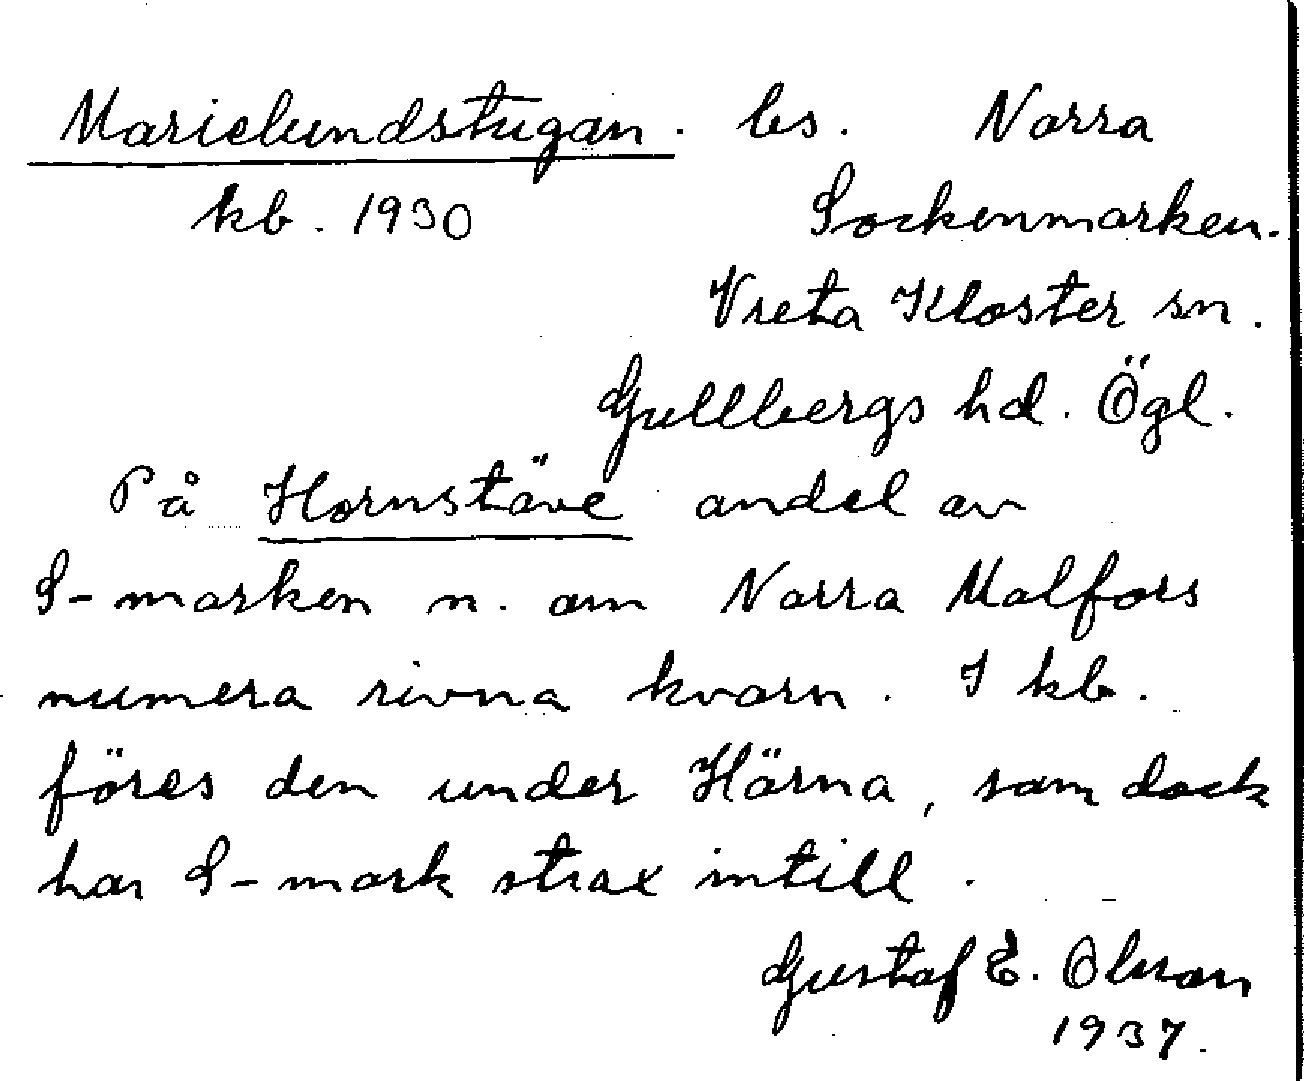 Marielundstugan. ls. Norra
kb. 1930 Sockenmarken.
Vreta Kloster sn.
Gullbergs hd. Ögl.
På Hornstäve andel av
S-marken n. om Norra Malfors
numera rivna kvarn. I kb.
föres den under Härna, som dock
har S-mark strax intill.
Gustaf E. Olsson
1937.